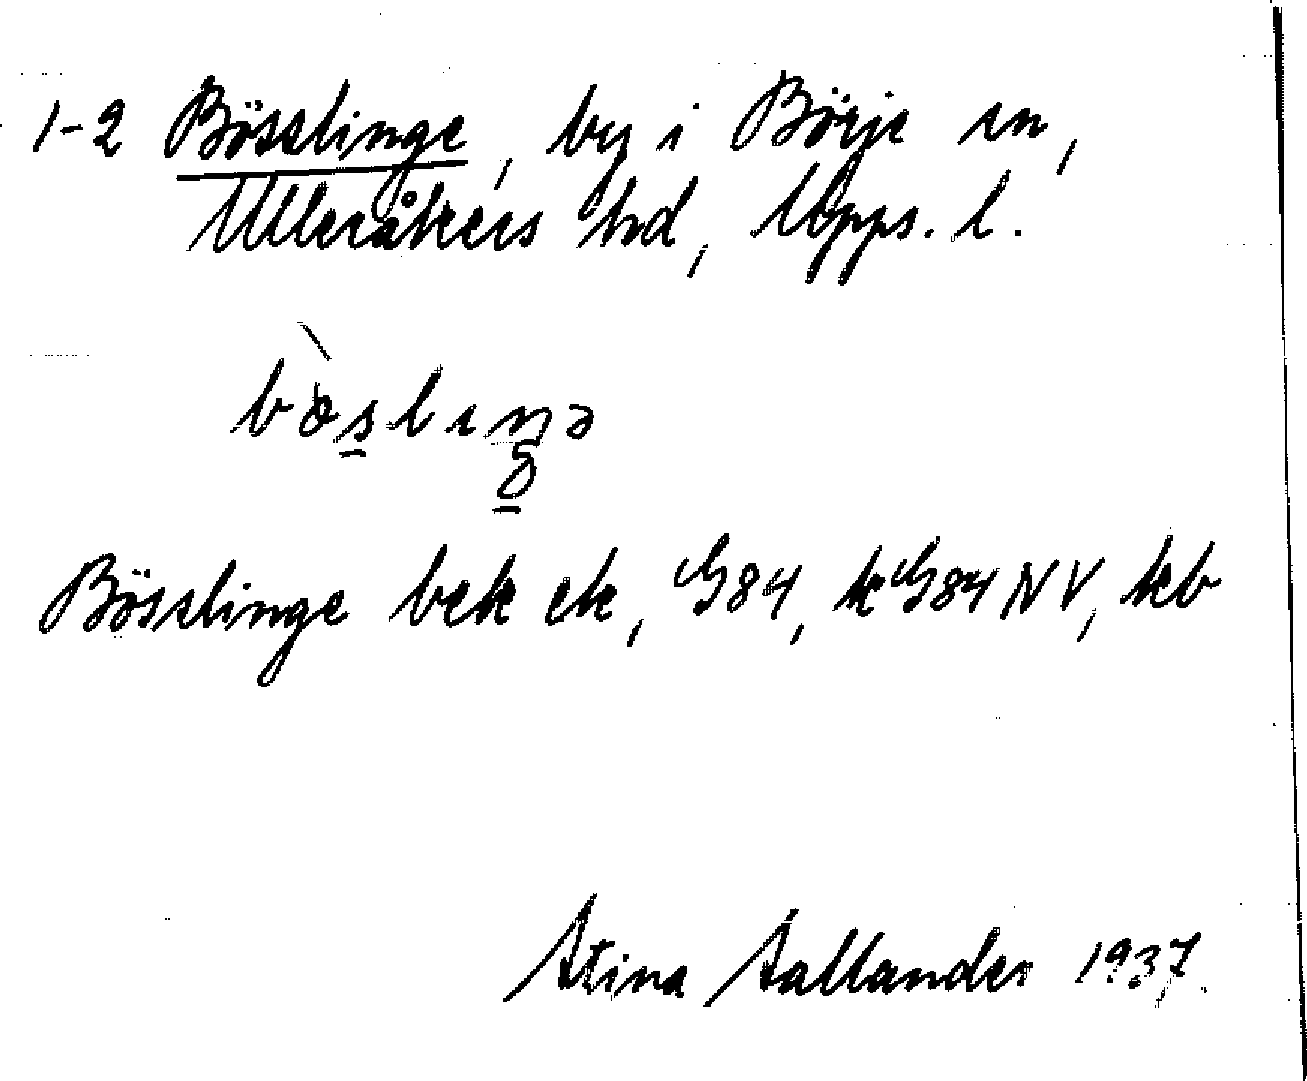 1-2 Bösslinge, by i Börje sn,
Ulleråkers hd, Upps. l.
Bösslinge bek ek, G84, kG84NV, kb
Stina Sallander 1937.